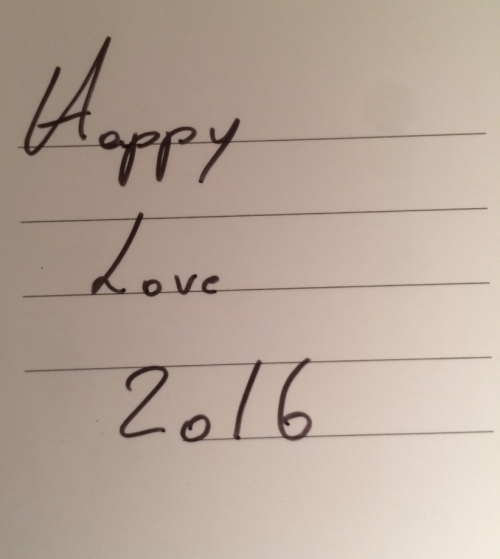 Happy
Love
2016